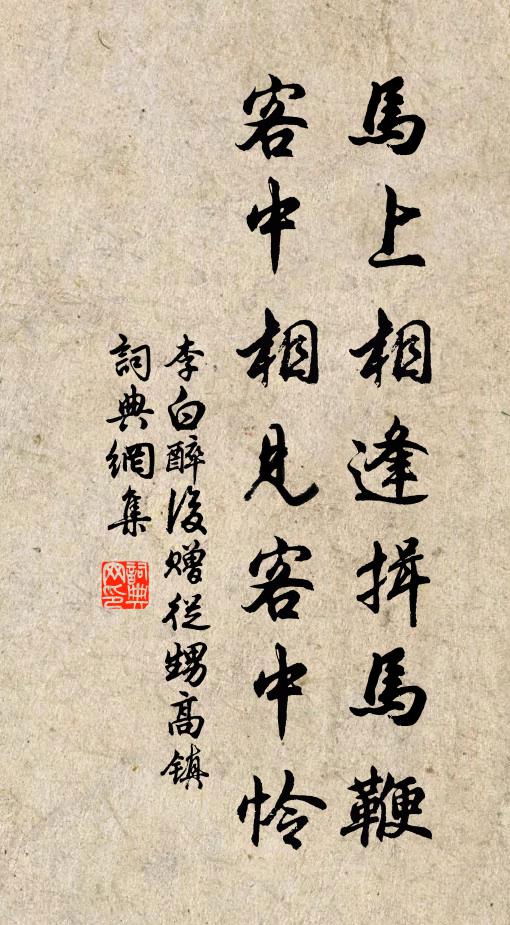 馬上相逢揖馬鞭
客中相見客中怜
李白醉後赠從甥高镇
詞典網集
詞典网印